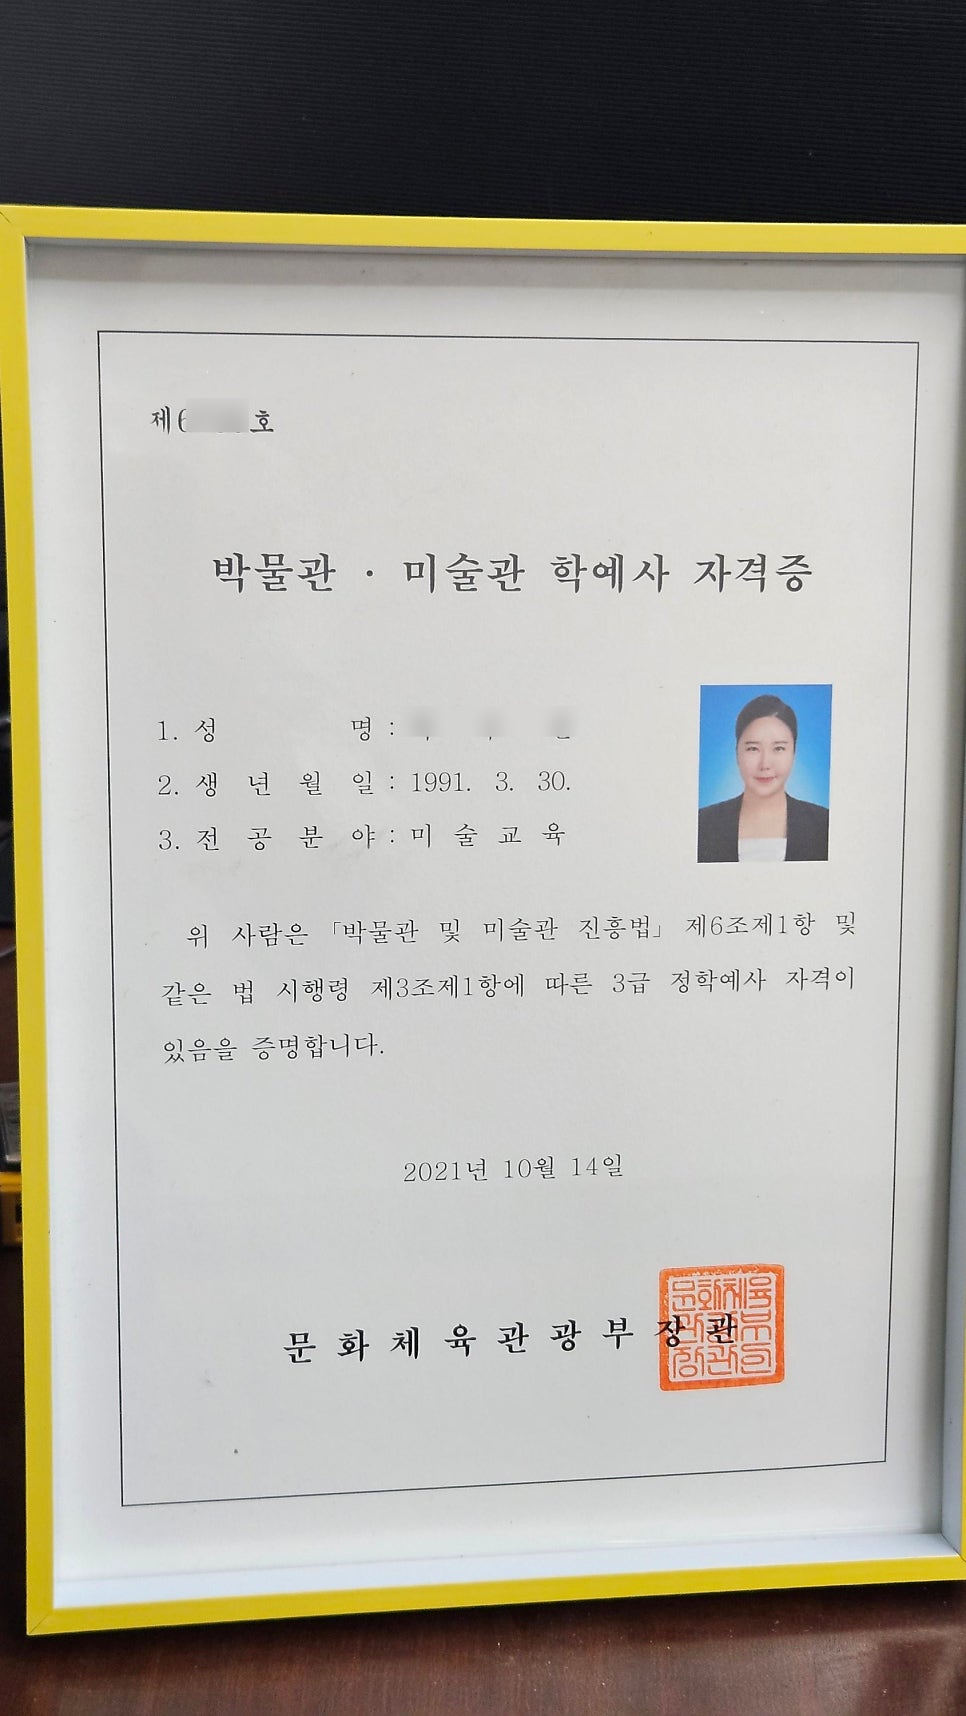 제6 호
박물관 · 미술관 학예사 자격증
1. 성 명 :
2. 생 년 월 일 : 1991. 3. 30.
3. 전 공 분 야 : 미 술 교 육
위 사람은 「박물관 및 미술관 진흥법」 제6조제1항 및
같은 법 시행령 제3조제1항에 따른 3급 정학예사 자격이
있음을 증명합니다.
2021년 10월 14일
문 화 체 육 관 광 부 장 관